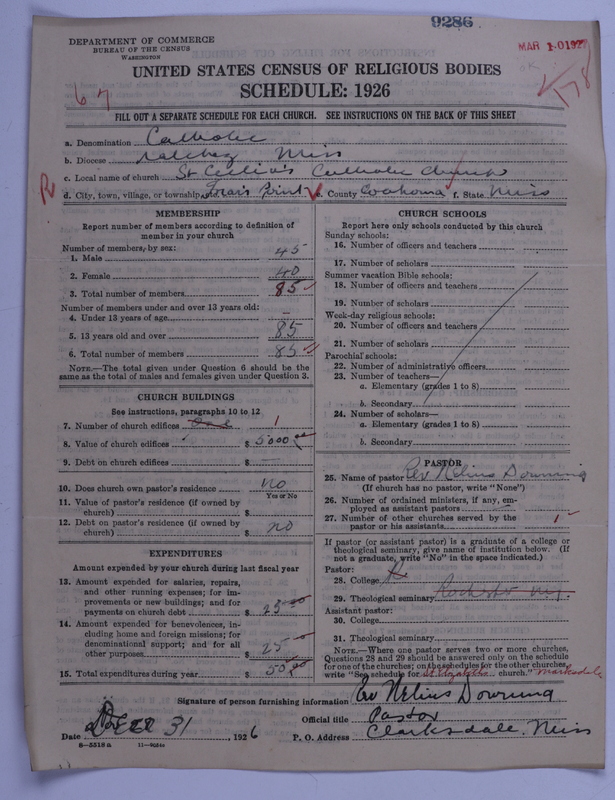 9286
DEPARTMENT OF COMMERCE
BUREAU OF THE CENSUS
WASHINGTON
MAR 10 192
UNITED STATES CENSUS OF RELIGIOUS BODIES
SCHEDULE: 1926
67
178
FILL OUT A SEPARATE SCHEDULE FOR EACH CHURCH. SEE INSTRUCTIONS ON THE BACK OF THIS SHEET
a. Denomination Catholic
b. Diocese Natchez Miss
c. Local name of church St Cecilia's Catholic church
R d. City, town, village, or township, etc. Friars Point e. County Coahoma f. State Miss
MEMBERSHIP
Report number of members according to definition of
member in your church
Number of members, by sex:
1. Male 45
2. Female 40
3. Total number of members 85
Number of members under and over 13 years old:
4. Under 13 years of age —
5. 13 years old and over 85
6. Total number of members 85
NOTE.—The total given under Question 6 should be the
same as the total of males and females given under Question 3.
CHURCH BUILDINGS
See instructions, paragraphs 10 to 12
7. Number of church edifices One 1
8. Value of church edifices $ 5000 00
9. Debt on church edifices $
10. Does church own pastor's residence No
Yes or No
11. Value of pastor's residence (if owned by
church) $
12. Debt on pastor's residence (if owned by
church) $ no
EXPENDITURES
Amount expended by your church during last fiscal year
13. Amount expended for salaries, repairs,
and other running expenses; for im-
provements or new buildings; and for
payments on church debt $ 25 00
14. Amount expended for benevolences, in-
cluding home and foreign missions; for
denominational support; and for all
other purposes $ 25 00
15. Total expenditures during year $ 50 00
CHURCH SCHOOLS
Report here only schools conducted by this church
Sunday schools:
16. Number of officers and teachers
17. Number of scholars
Summer vacation Bible schools:
18. Number of officers and teachers
19. Number of scholars
Week-day religious schools:
20. Number of officers and teachers
21. Number of scholars
Parochial schools:
22. Number of administrative officers
23. Number of teachers—
a. Elementary (grades 1 to 8)
b. Secondary
24. Number of scholars—
a. Elementary (grades 1 to 8)
b. Secondary
PASTOR
25. Name of pastor Rev Nelius Downing
(If church has no pastor, write "None")
26. Number of ordained ministers, if any, em-
ployed as assistant pastors —
27. Number of other churches served by the
pastor or his assistants 1
If pastor (or assistant pastor) is a graduate of a college or
theological seminary, give name of institution below. (If
not a graduate, write "No" in the space indicated.)
Pastor:
28. College
29. Theological seminary Rochester N.Y.
Assistant pastor:
30. College
31. Theological seminary
NOTE.—Where one pastor serves two or more churches,
Questions 28 and 29 should be answered only on the schedule
for one of the churches; on the schedules for the other churches,
write "See schedule for St Elizabeths church." Clarksdale
Signature of person furnishing information Rev Nelius Downing
Official title Pastor
Date Dec 31, 1926 P. O. Address Clarksdale, Miss
8—5518a 11—9024b